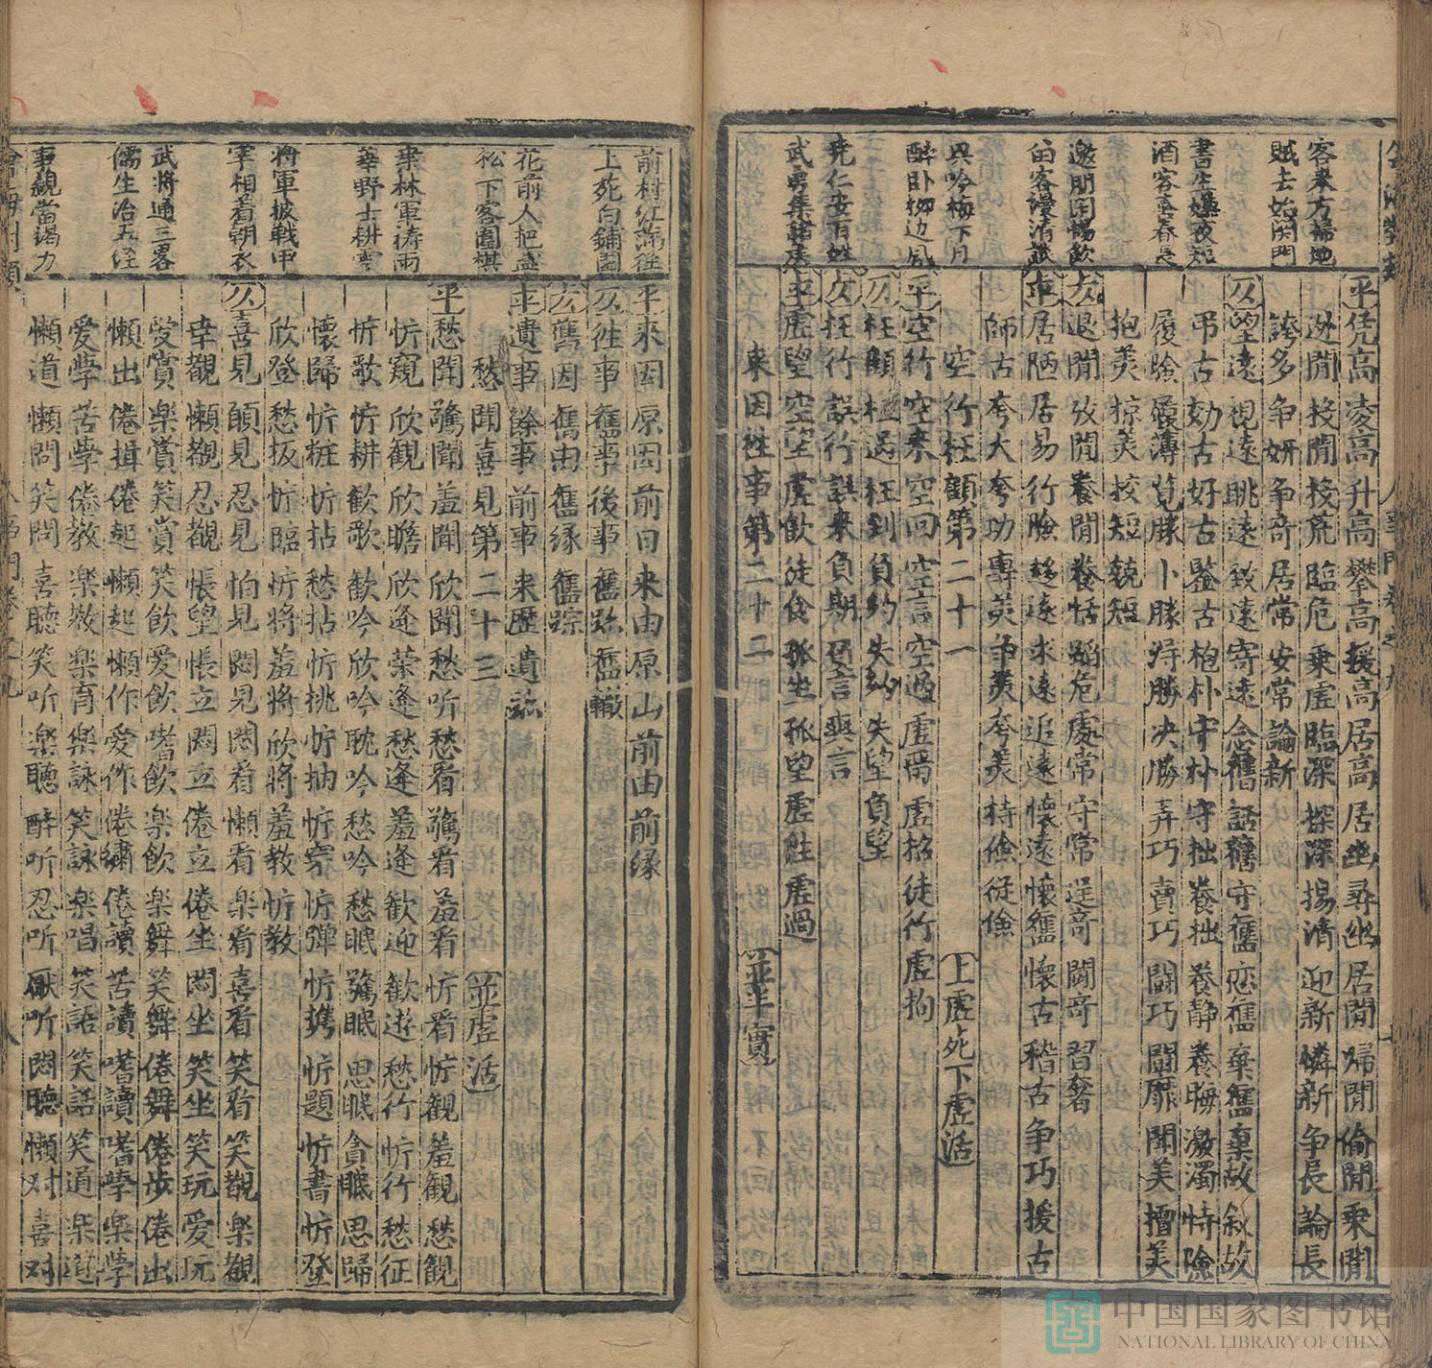 客來方掃地
賊去始関門
書生嫌夜短
酒客喜春長
邀朋因暢飲
醉卧柳边風
尭仁安百姓
平凭高凌高升高攀高援高居高居幽尋幽居閒歸閒偷閒乗閒
迯閒投閒投荒臨危乗虚臨深探深揚清迎新憐新争長論長
誇多争妍争奇居常安常論新
仄望遠視遠眺遠致遠寄遠念舊話舊守舊恋舊棄舊棄故叙故
弔古効古好古鑒古抱朴守朴守拙養拙養静養晦激濁恃險
履險履薄覓勝卜勝淂勝决勝弄巧賣巧鬪巧鬪靡鬪美擅美
抱美掠美挍短競短
仄退閒放閒養閒養恬蹈危處常守常逞奇鬪奇習奢
平居陋居易行險移遠求遠追遠懷遠懷舊懷古稽古争巧援古
師古夸大夸功專美争美夸美持儉従儉
空行枉顧第二十一 上虚死下虚活
平空行空來空回空言空過虚焉虚招徒行虚拘
仄枉顧枉遇枉到負約失約失望負望
仄枉行誤行誤來負期召言爽言
平虚望空望虚飲徒食孤坐孤望虚胜虚過
來因徃事第二十二 並半實
前村紅滿徃
上苑白鋪園
花前人把盞
松下客圍棋
華野士耕雲
將軍披戰甲
宰相着朝衣
武將通三畧
儒生治五经
事親當竭力
平來因原因前日来由原由前由前緣
仄徃事舊事後事舊跡舊轍
仄舊因舊由舊緣舊踪
平遺事餘事前事来歷遺跡
愁聞喜見第二十三 並虚活
平愁聞驚聞羞聞欣聞愁听愁看驚看羞看忻看忻觀羞觀愁觀
忻窺欣觀欣瞻欣逢荣逢愁逢羞逢歓迎歓遊愁行忻行愁征
忻歌忻耕歓歌歓吟欣吟耽吟愁吟愁眠驚眠思眠貪眠思歸
懷歸忻粧忻拈愁拈忻挑忻抽忻穿忻彈忻携忻題忻書忻登
欣登愁扳忻臨忻將羞將欣將羞教忻教
仄喜見頋見忍見怕見悶見悶看懶看楽看喜看笑看笑觀楽觀
幸觀懶觀忍觀悵望悵立悶立倦立倦坐悶坐笑坐笑玩愛玩
受賞楽賞笑賞笑飲愛飲嗜飲楽飲楽舞笑舞倦舞倦步倦出
懶出倦揖倦起懶起懶作愛作倦繡倦讀苦讀嗜讀嗜學楽學
愛學苦學倦教楽教楽育楽詠笑詠楽唱笑語笑話笑道楽道
懶道懶問笑問喜聴笑听楽聴醉听忍听厭听悶聴懶对喜对